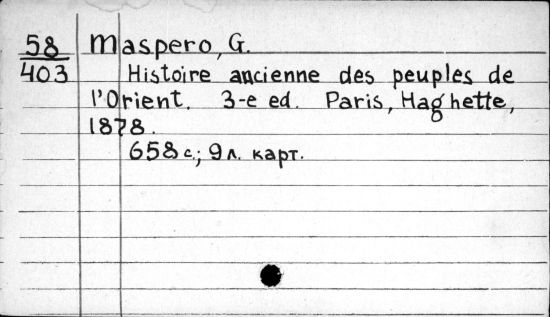 58 Maspero, G.
403 Histoire ancienne des peuples de
l'Orient. 3-e ed. Paris, Haghette,
1878.
658 с.; 9 л. карт.